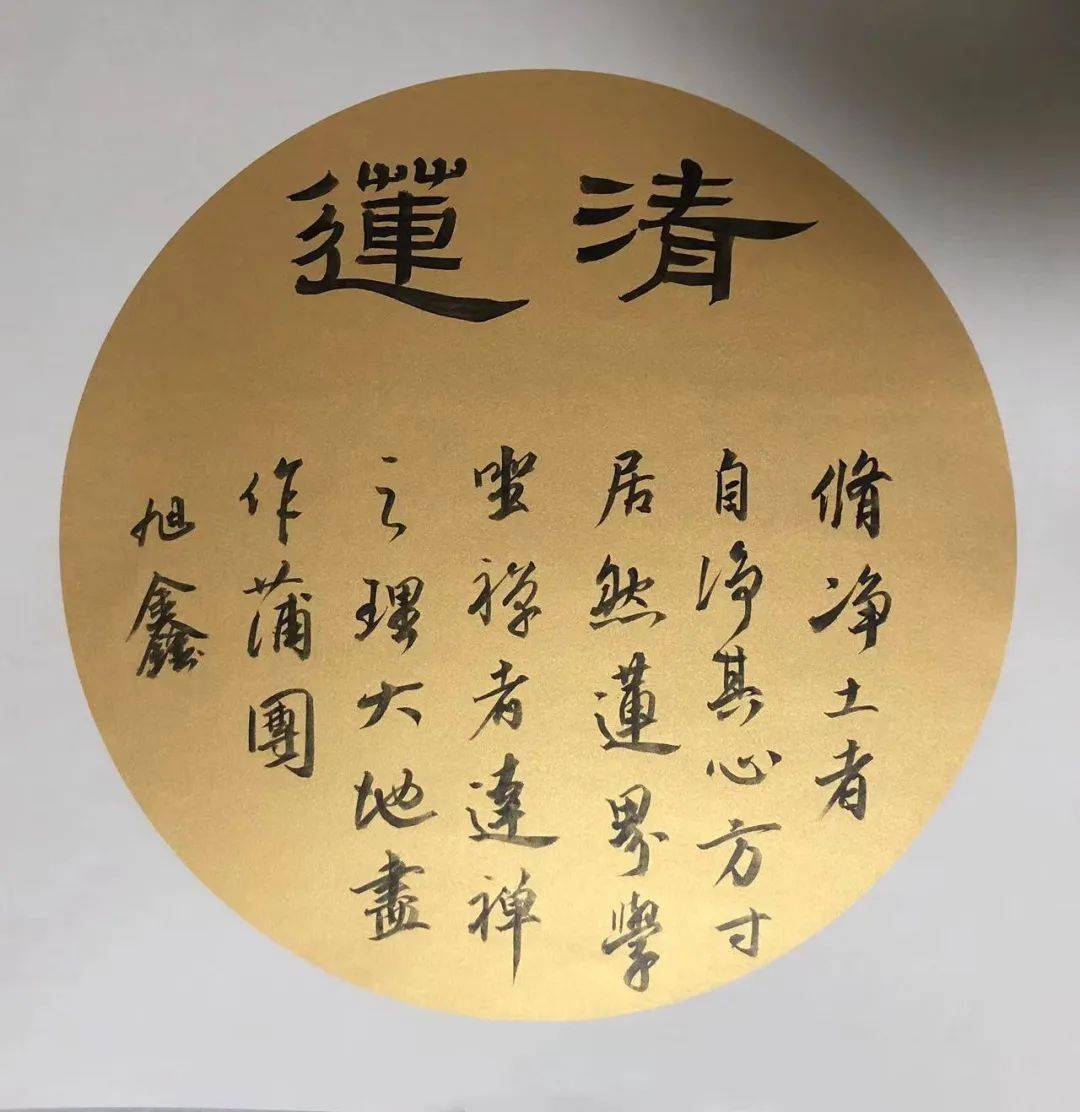 清蓮
脩净土者
自净其心方寸
居然蓮界學
坐禅者達禅
之理大地盡
作蒲團
旭鑫